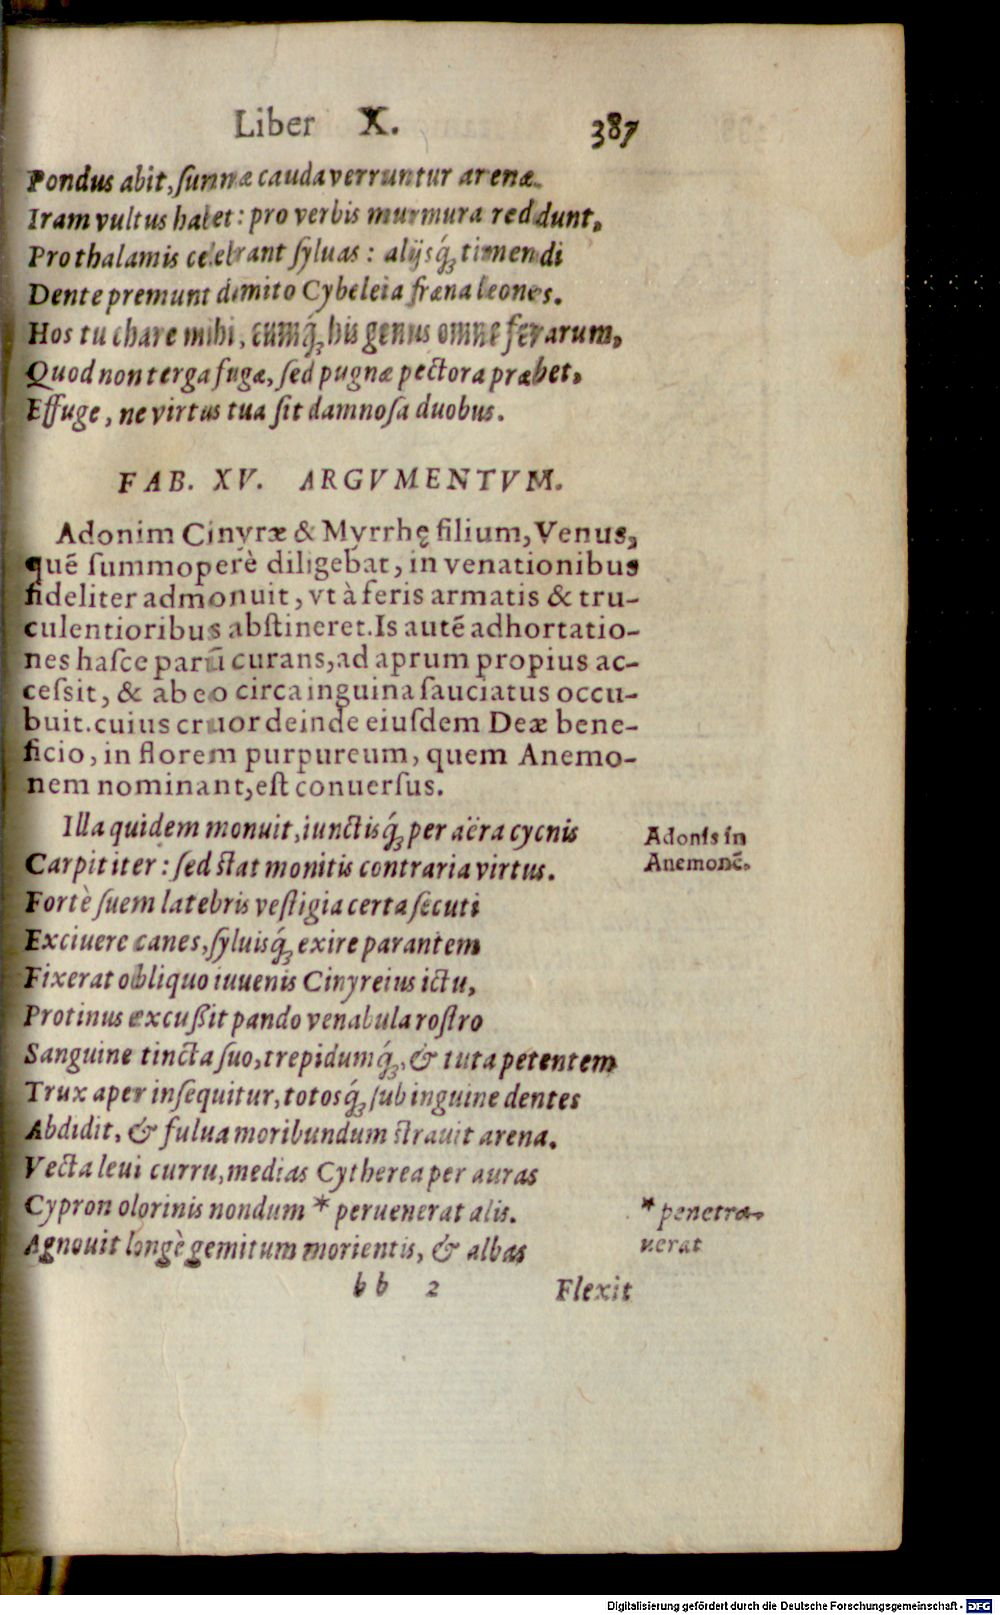 Liber X. 387
Pondus abit, ſummæ cauda verruntur arenæ.
Iram vultus habet: pro verbis murmura reddunt,
Pro thalamis celebrant ſyluas: alijsq́ꝫ timendi
Dente premunt domito Cybeleia fræna leones.
Hos tu chare mihi, cumq́ꝫ his genus omne ferarum,
Quod non terga fugæ, ſed pugnæ pectora præbet,
Effuge, ne virtus tua ſit damnoſa duobus.
FAB. XV. ARGVMENTVM.
Adonim Cinyræ & Myrrhę filium, Venus,
quē ſummoperè diligebat, in venationibus
fideliter admonuit, vt à feris armatis & tru-
culentioribus abſtineret. Is autē adhortatio-
nes haſce parū curans, ad aprum propius ac-
ceſsit, & ab eo circa inguina ſauciatus occu-
buit. cuius cruor deinde eiuſdem Deæ bene-
ficio, in florem purpureum, quem Anemo-
nem nominant, eſt conuerſus.
Illa quidem monuit, iunctisq́ꝫ per aëra cycnis
Adonis in
Carpit iter: ſed ſtat monitis contraria virtus.
Anemonē.
Fortè ſuem latebris veſtigia certa ſecuti
Exciuere canes, ſyluisq́ꝫ exire parantem
Fixerat obliquo iuuenis Cinyreius ictu,
Protinus excußit pando venabula roſtro
Sanguine tincta ſuo, trepidumq́ꝫ, & tuta petentem
Trux aper inſequitur, totosq́ꝫ ſub inguine dentes
Abdidit, & fulua moribundum ſtrauit arena.
Vecta leui curru, medias Cytherea per auras
Cypron olorinis nondum * peruenerat alis.
* penetra-
Agnouit longè gemitum morientis, & albas
uerat
bb 2 Flexit
Digitalisierung gefördert durch die Deutsche Forschungsgemeinschaft - DFG